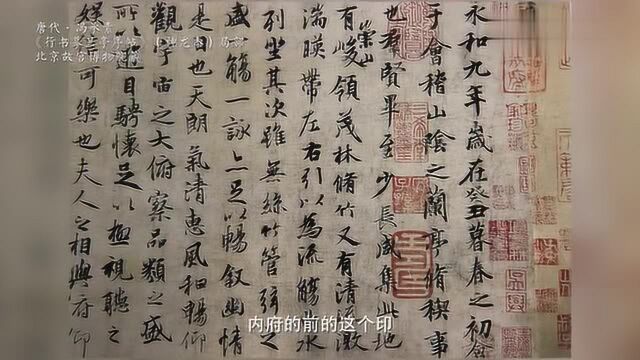 唐代·冯承素
《行书摹兰亭序卷》(神龙本)局部
北京故宫博物院藏
永和九年歲在癸丑暮春之初會
于會稽山陰之蘭亭脩稧事
也羣賢畢至少長咸集此地
有崇山峻領茂林脩竹又有清流激
湍暎帶左右引以為流觴曲水
列坐其次雖無絲竹管弦之
盛一觴一詠亦足以暢叙幽情
是日也天朗氣清惠風和暢仰
觀宇宙之大俯察品類之盛
所以遊目騁懷足以極視聽之
娛信可樂也夫人之相與俯仰
内府的前的这个印